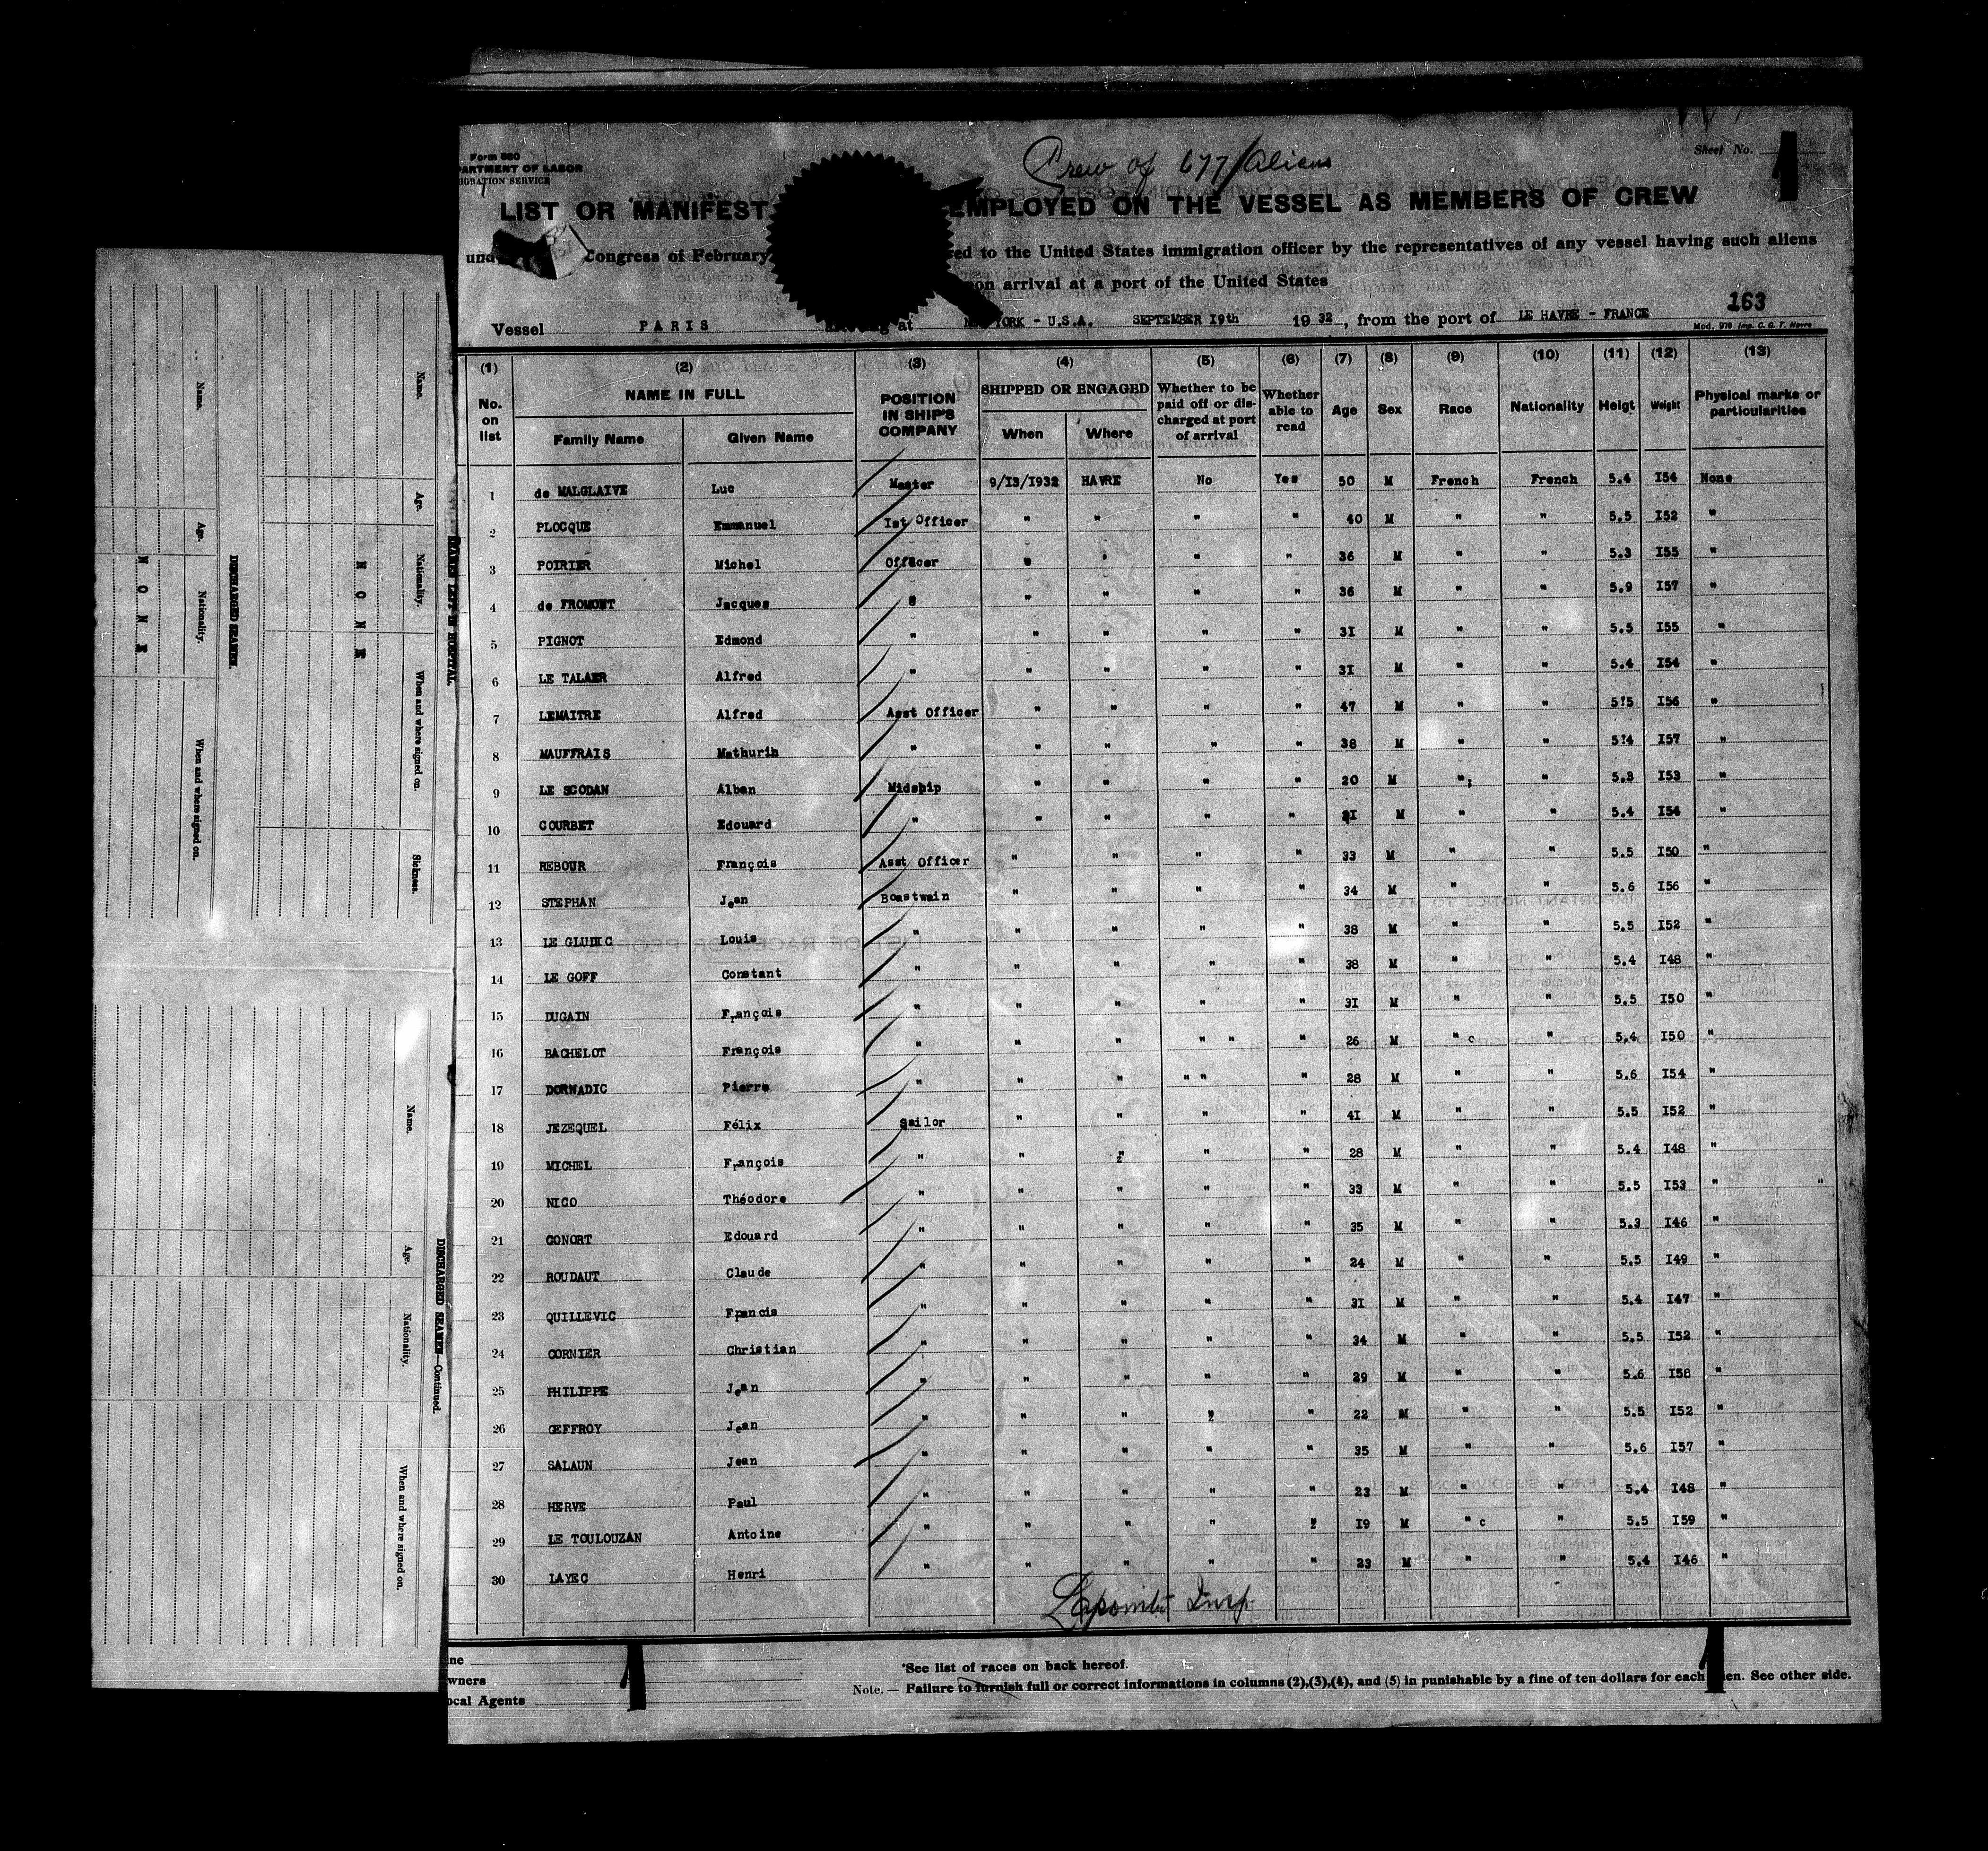 Form 680
ARTMENT OF LABOR
IGRATION SERVICE
Crew of 677/Aliens
Sheet No. 1
LIST OR MANIFEST EMPLOYED ON THE VESSEL AS MEMBERS OF CREW
und Congress of February ed to the United States immigration officer by the representatives of any vessel having such aliens
on arrival at a port of the United States
163
Vessel PARIS at YORK - U.S.A. SEPTEMBER 19th 1932, from the port of LE HAVRE - FRANCE
Mod. 970 Imp. C. G. T. Havre
(1) (2) (3) (4) (5) (6) (7) (8) (9) (10) (11) (12) (13)
No. on list NAME IN FULL POSITION IN SHIP'S COMPANY SHIPPED OR ENGAGED Whether to be paid off or discharged at port of arrival Whether able to read Age Sex Race Nationality Heigt Weight Physical marks or particularities
Family Name Given Name When Where
1 de MALGLAIVE Luc Master 9/I3/I932 HAVRE No Yes 50 M French French 5.4 I54 None
2 PLOCQUE Emmanuel Ist Officer " " " " 40 M " " 5.5 I52 "
3 POIRIER Michel Officer " " " " 36 M " " 5.3 I55 "
4 de FROMONT Jacques " " " " " 36 M " " 5.9 I57 "
5 PIGNOT Edmond " " " " " 3I M " " 5.5 I55 "
6 LE TALAER Alfred " " " " " 3I M " " 5.4 I54 "
7 LEMAITRE Alfred Asst Officer " " " " 47 M " " 5?5 I56 "
8 MAUFFRAIS Mathurin " " " " " 38 M " " 5?4 I57 "
9 LE SCODAN Alban Midship " " " " 20 M " " 5.3 I53 "
10 COURBET Edouard " " " " " 2I M " " 5.4 I54 "
11 REBOUR François Asst Officer " " " " 33 M " " 5.5 I50 "
12 STEPHAN Jean Boastwain " " " " 34 M " " 5.6 I56 "
13 LE GLUDIC Louis " " " " " 38 M " " 5.5 I52 "
14 LE GOFF Constant " " " " " 38 M " " 5.4 I48 "
15 DUGAIN François " " " " " 3I M " " 5.5 I50 "
16 BACHELOT François " " " " " " 26 M " c " 5.4 I50 "
17 DORNADIC Pierre " " " " " " 28 M " " 5.6 I54 "
18 JEZEQUEL Félix Sailor " " " " 4I M " " 5.5 I52 "
19 MICHEL François " " " " " 28 M " " 5.4 I48 "
20 NICO Théodore " " " " " 33 M " " 5.5 I53 " "
21 CONORT Edouard " " " " " 35 M " " 5.3 I46 "
22 ROUDAUT Claude " " " " " 24 M " " 5.5 I49 "
23 QUILLEVIC Francis " " " " " 3I M " " 5.4 I47 "
24 CORNIER Christian " " " " " 34 M " " 5.5 I52 "
25 PHILIPPE Jean " " " " " 29 M " " 5.6 I58 "
26 GEFFROY Jean " " " " " 22 M " " 5.5 I52 "
27 SALAUN Jean " " " " " 35 M " " 5.6 I57 "
28 HERVE Paul " " " " " 23 M " " 5.4 I48 "
29 LE TOULOUZAN Antoine " " " " " I9 M " c " 5.5 I59 "
30 LAYEC Henri " " " " " 23 M " " 5.4 I46 "
Insp.
ne
wners
ocal Agents
*See list of races on back hereof.
Note. — Failure to furnish full or correct informations in columns (2),(3),(4), and (5) in punishable by a fine of ten dollars for each en. See other side.
SEAMEN LEFT IN HOSPITAL.
Name. Age. Nationality. When and where signed on. Sickness.
NONE
DISCHARGED SEAMEN.
Name. Age. Nationality. When and when signed on.
NONE
DISCHARGED SEAMEN—Continued.
Name. Age. Nationality. When and where signed on.